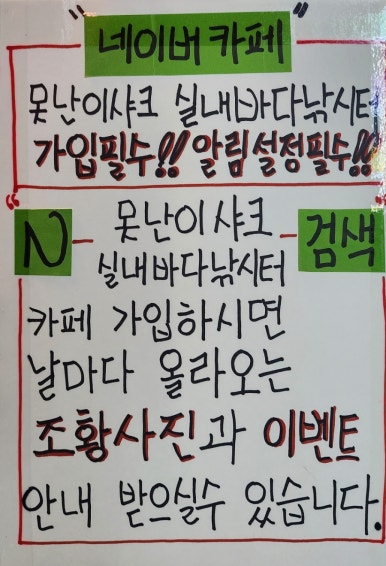 "네이버 카페"
못난이샤크 실내바다낚시터
가입필수!! 알림설정필수!!
"N - 못난이샤크 실내바다낚시터 - 검색"
카페 가입하시면
날마다 올라오는
조황사진과 이벤트
안내 받으실수 있습니다.